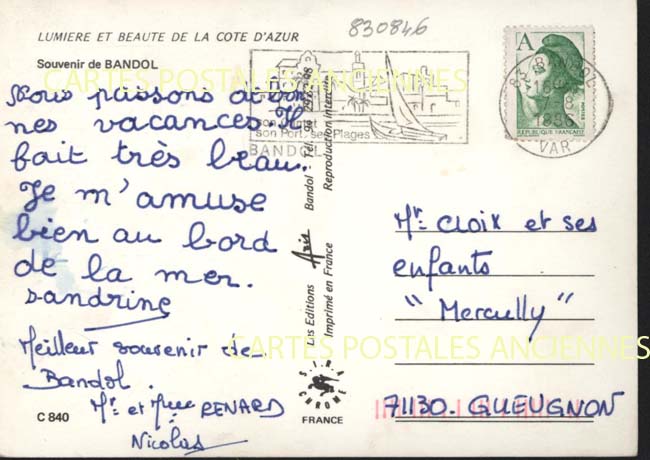 830846
LUMIERE ET BEAUTE DE LA COTE D'AZUR
Souvenir de BANDOL
CARTES POSTALES ANCIENNES
Nous passons de bon
nes vacances. Il
fait très beau.
Je m'amuse
bien au bord
de la mer.
Sandrine
Meilleur souvenir de
Bandol.
Mr et Mme RENARD
Nicolas
C 840
son Port, ses Plages
BANDOL
Les Editions Aris Bandol - Tél.
Imprimé en France Reproduction interdite
SIRA CHROME
FRANCE
A
REPUBLIQUE FRANÇAISE
POSTES
83 BANDOL
1986
VAR
Mr CLOIX et ses
enfants
"Mercully"
CARTES POSTALES ANCIENNES
71130. GUEUGNON